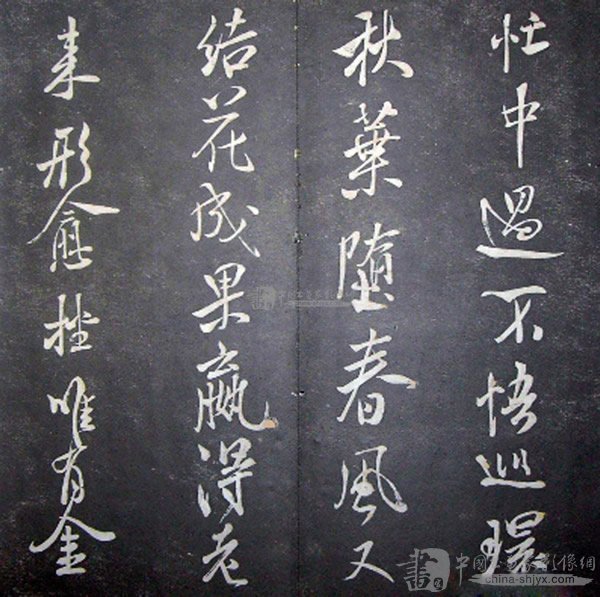 忙中過不悟巡環
秋葉墮春風又
結花成果贏得老
来形愈唯有金
中國書畫家影像網
china-shjyx.com